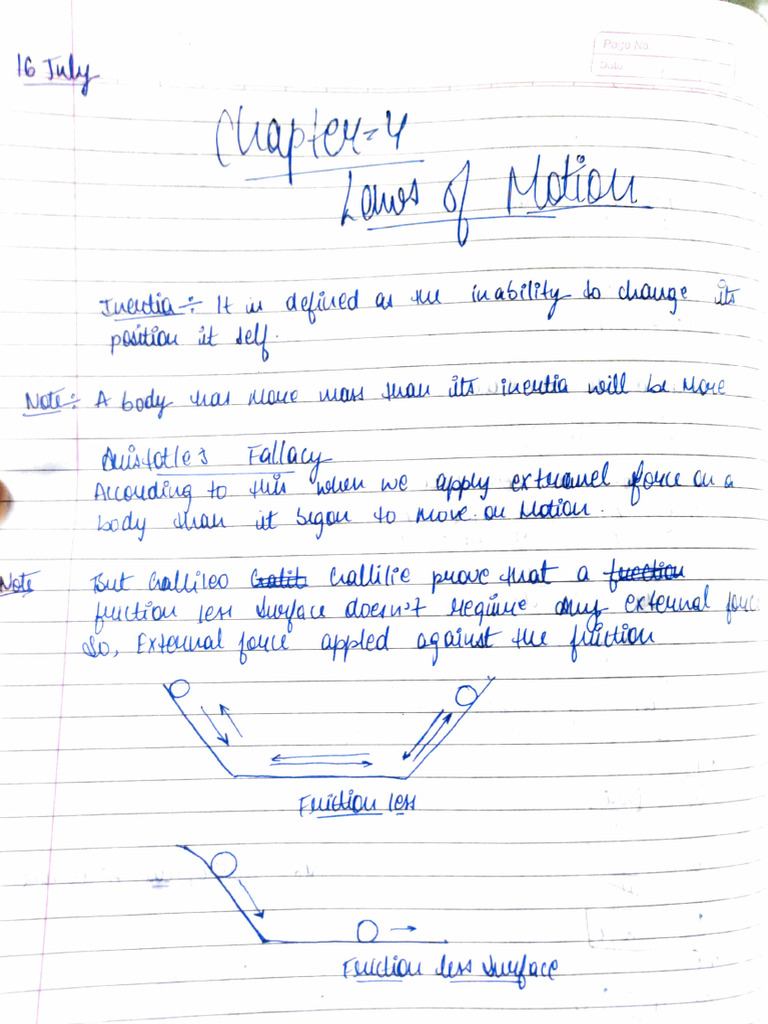 Page No.
Date
16 July
Chapter-4
Laws of Motion
Inertia ÷ It is defined as the inability to change its
position it self.
Note ÷ A body has more mass than its inertia will be more
Aristotle's Fallacy
According to this when we apply external force on a
body than it began to move on Motion.
Note But Gallileo Gallilie prove that a
friction less surface doesn't require any external force
So, External force appled against the friction
Friction less
Friction less surface